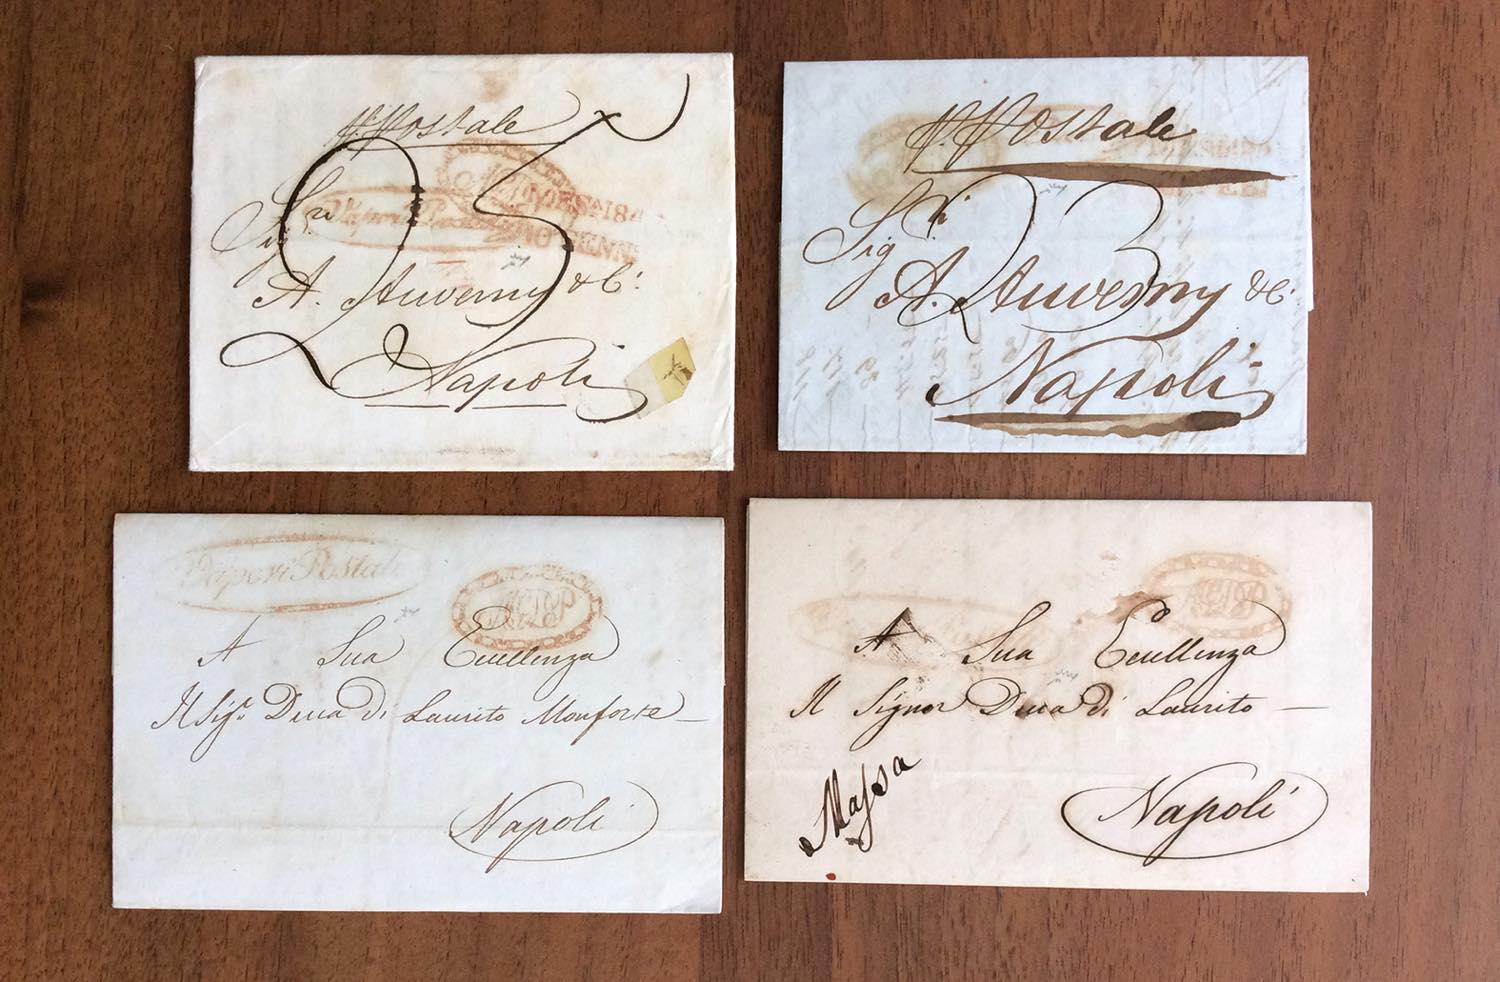 p. Postale
Vapori Postali
Sig.ri
A. Auverny & C.
Napoli
25
p. Postale
Sig.ri
A. Auverny & C.
Napoli
23
Vapori Postali
A Sua Eccellenza
Il Sig.r Duca di Laurito Monforte
Napoli
A Sua Eccellenza
Il Signor Duca di Laurito
Massa
Napoli